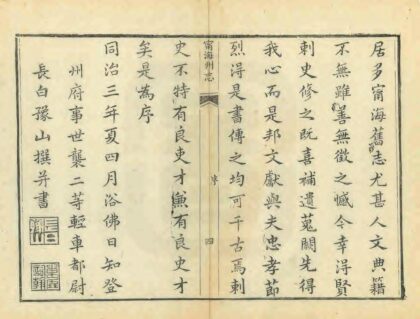 居多甯海舊志尤甚人文典籍
不無雖善無徵之憾今幸得賢
刺史修之既喜補遺蒐闕先得
我心而是邦文獻與夫忠孝節
烈得是書傳之均可千古焉刺
甯海州志
序
四
史不特有良吏才兼有良史才
矣是為序
同治三年夏四月浴佛日知登
州府事世襲二等輕車都尉
長白豫山撰并書